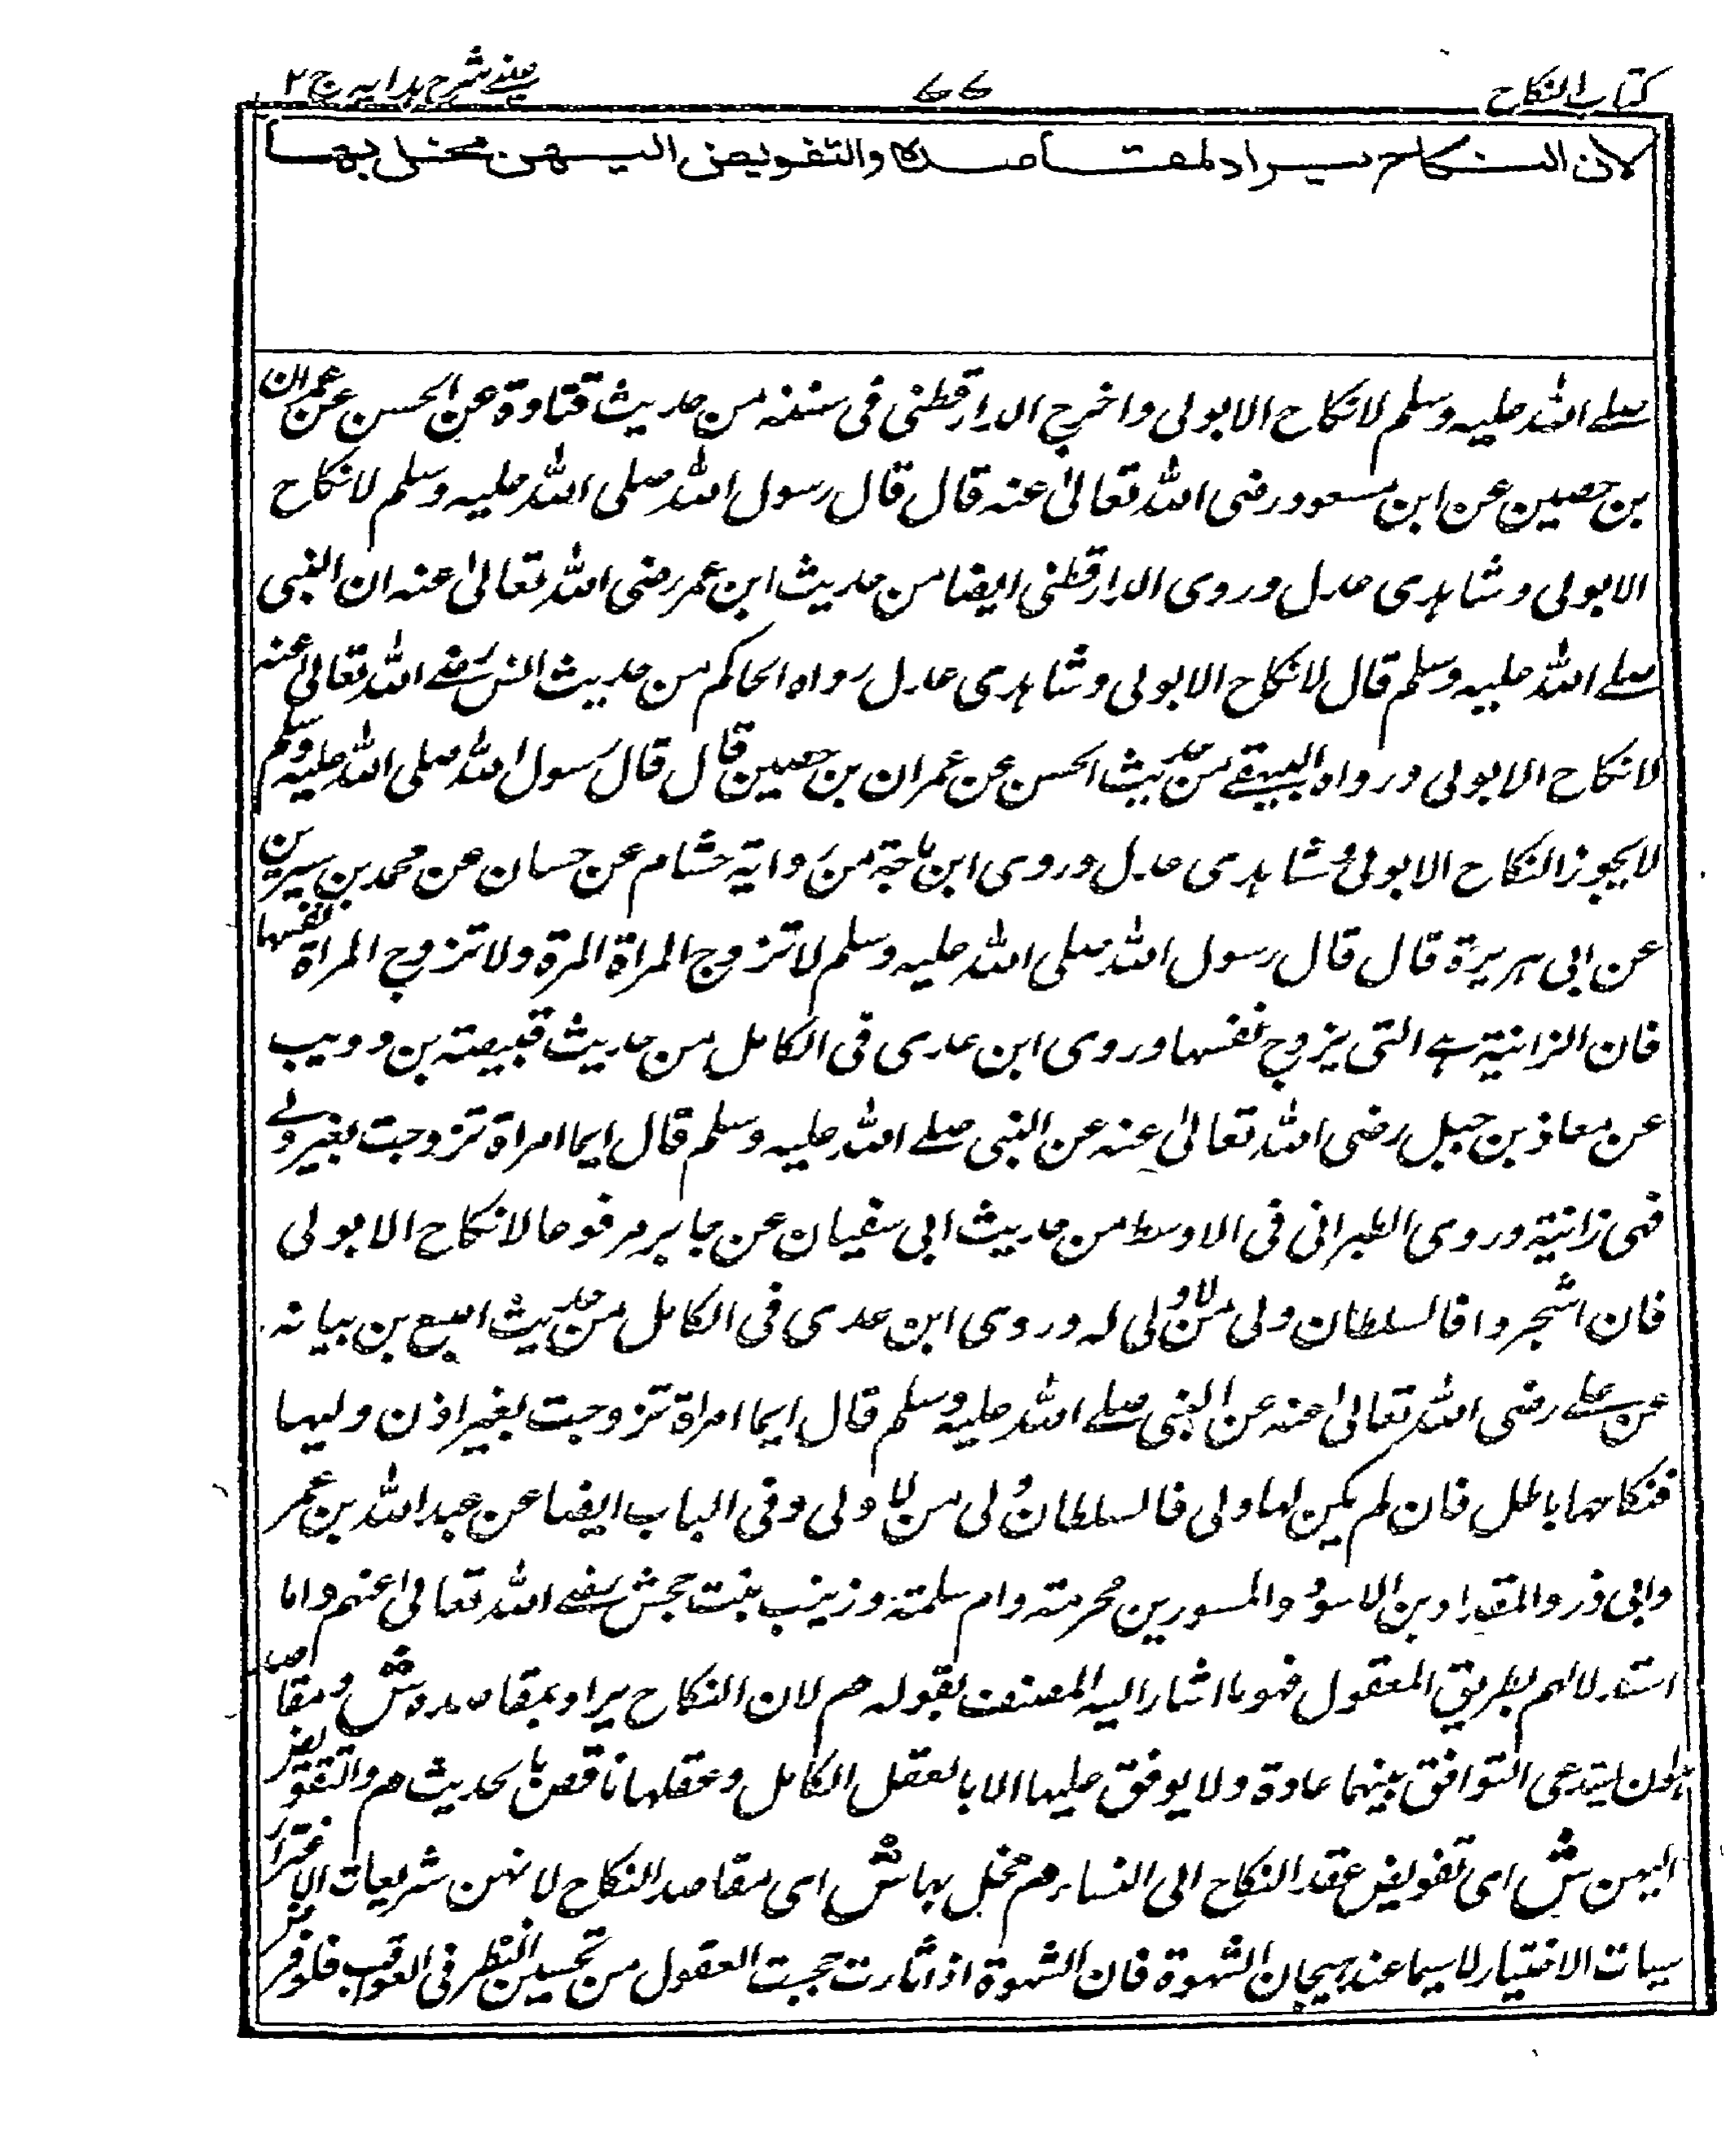 كتاب النكاح
٦٦
عينے شرح ہدایہ ج ۲
لان النكاح يراد لمقاصده والتفويض اليهن مخل بها
صلے اللہ علیہ وسلم لا نكاح الا بولى واخرج الدارقطنى فى سننه من حديث قتادة عن الحسن عن عمران
بن حصين عن ابن مسعود رضى الله تعالىٰ عنه قال قال رسول الله صلى الله عليه وسلم لا نكاح
الا بولى وشاہدى عدل وروى الدارقطنى ايضا من حديث ابن عمر رضى الله تعالىٰ عنه ان النبى
صلے الله عليه وسلم قال لا نكاح الا بولى وشاہدى عدل رواه الحاكم من حديث انس رضے الله تعالىٰ عنه
لا نكاح الا بولى ورواه البيہقے من حديث الحسن عن عمران بن حصين قال قال رسول الله صلى الله عليه وسلم
لا يجوز النكاح الا بولى وشاہدى عدل وروى ابن ماجة من رواية حشام عن حسان عن محمد بن سيرين
عن ابى ہريرة قال قال رسول الله صلى الله عليه وسلم لا تزوج المراة المرة ولا تزوج المراة نفسها
فان الزانية ہے التى يزوج نفسها وروى ابن عدى فى الكامل من حديث قبيصة بن دويب
عن معاذ بن جبل رضى الله تعالىٰ عنه عن النبى صلے الله عليه وسلم قال ايما امراة تزوجت بغير ولے
فہى زانية وروى الطبرانى فى الاوسط من حديث ابى سفيان عن جابر مرفوعا لا نكاح الا بولى
فان اشجروا فالسلطان ولى من لا ولى له وروى ابن عدى فى الكامل من حديث اصبع بن بيانہ
عن علے رضى الله تعالىٰ عنه عن النبى صلے الله عليه وسلم قال ايما امراة تزوجت بغير اذن وليہا
فنكاحها باطل فان لم يكن لہا ولى فالسلطان ولى من لا ولى وفى الباب ايضا عن عبد الله بن عمر
وابى ذر والمقداد بن الاسود والمسور بن مخرمة وام سلمة وزينب بنت جحش رضے الله تعالىٰ عنہم واما
استدلالہم بطريق المعقول فہو ما اشار اليہ المصنف بقولہ م لان النكاح يراد بمقاصده ش ومقاصد
تستدعى التوافق بينہما عادة ولا يوفق عليہا الا بالعقل الكامل وعقلہا ناقص بالحديث م والتفويض
اليہن ش اى تفويض عقد النكاح الى النساء م مخل بہا ش اى مقاصد النكاح لانهن سريعات الاغترار
سيات الاختيار لا سيما عند ہيجان الشہوة فان الشہوة اذا ثارت حجبت العقول من تحسين النظر فى العواقب فلو فر